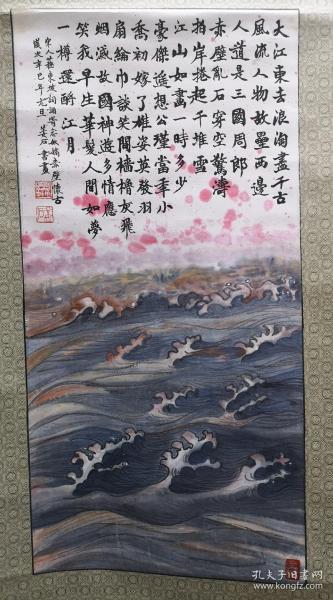 大江東去浪淘盡千古
風流人物故壘西邊
人道是三國周郎
赤壁亂石穿空驚濤
拍岸捲起千堆雪
江山如畫一時多少
豪傑遥想公瑾當年小
喬初嫁了雄姿英發羽
扇綸巾談笑間檣櫓灰飛
烟滅故國神遊多情應
笑我早生華髮人間如夢
一樽還酹江月
宋人蘇東坡詞調寄念奴嬌赤壁懷古
歲次辛巳年元旦 石書畫
孔夫子旧书网
www.kongfz.com